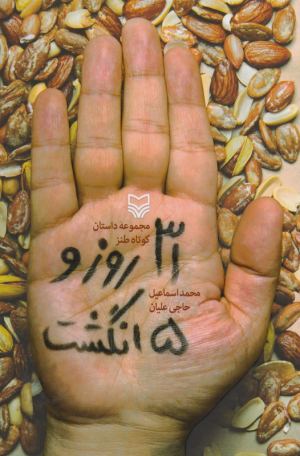 مجموعه داستان
کوتاه طنز
۳۱ روز و
محمد اسماعیل
حاجی علیان
۵ انگشت